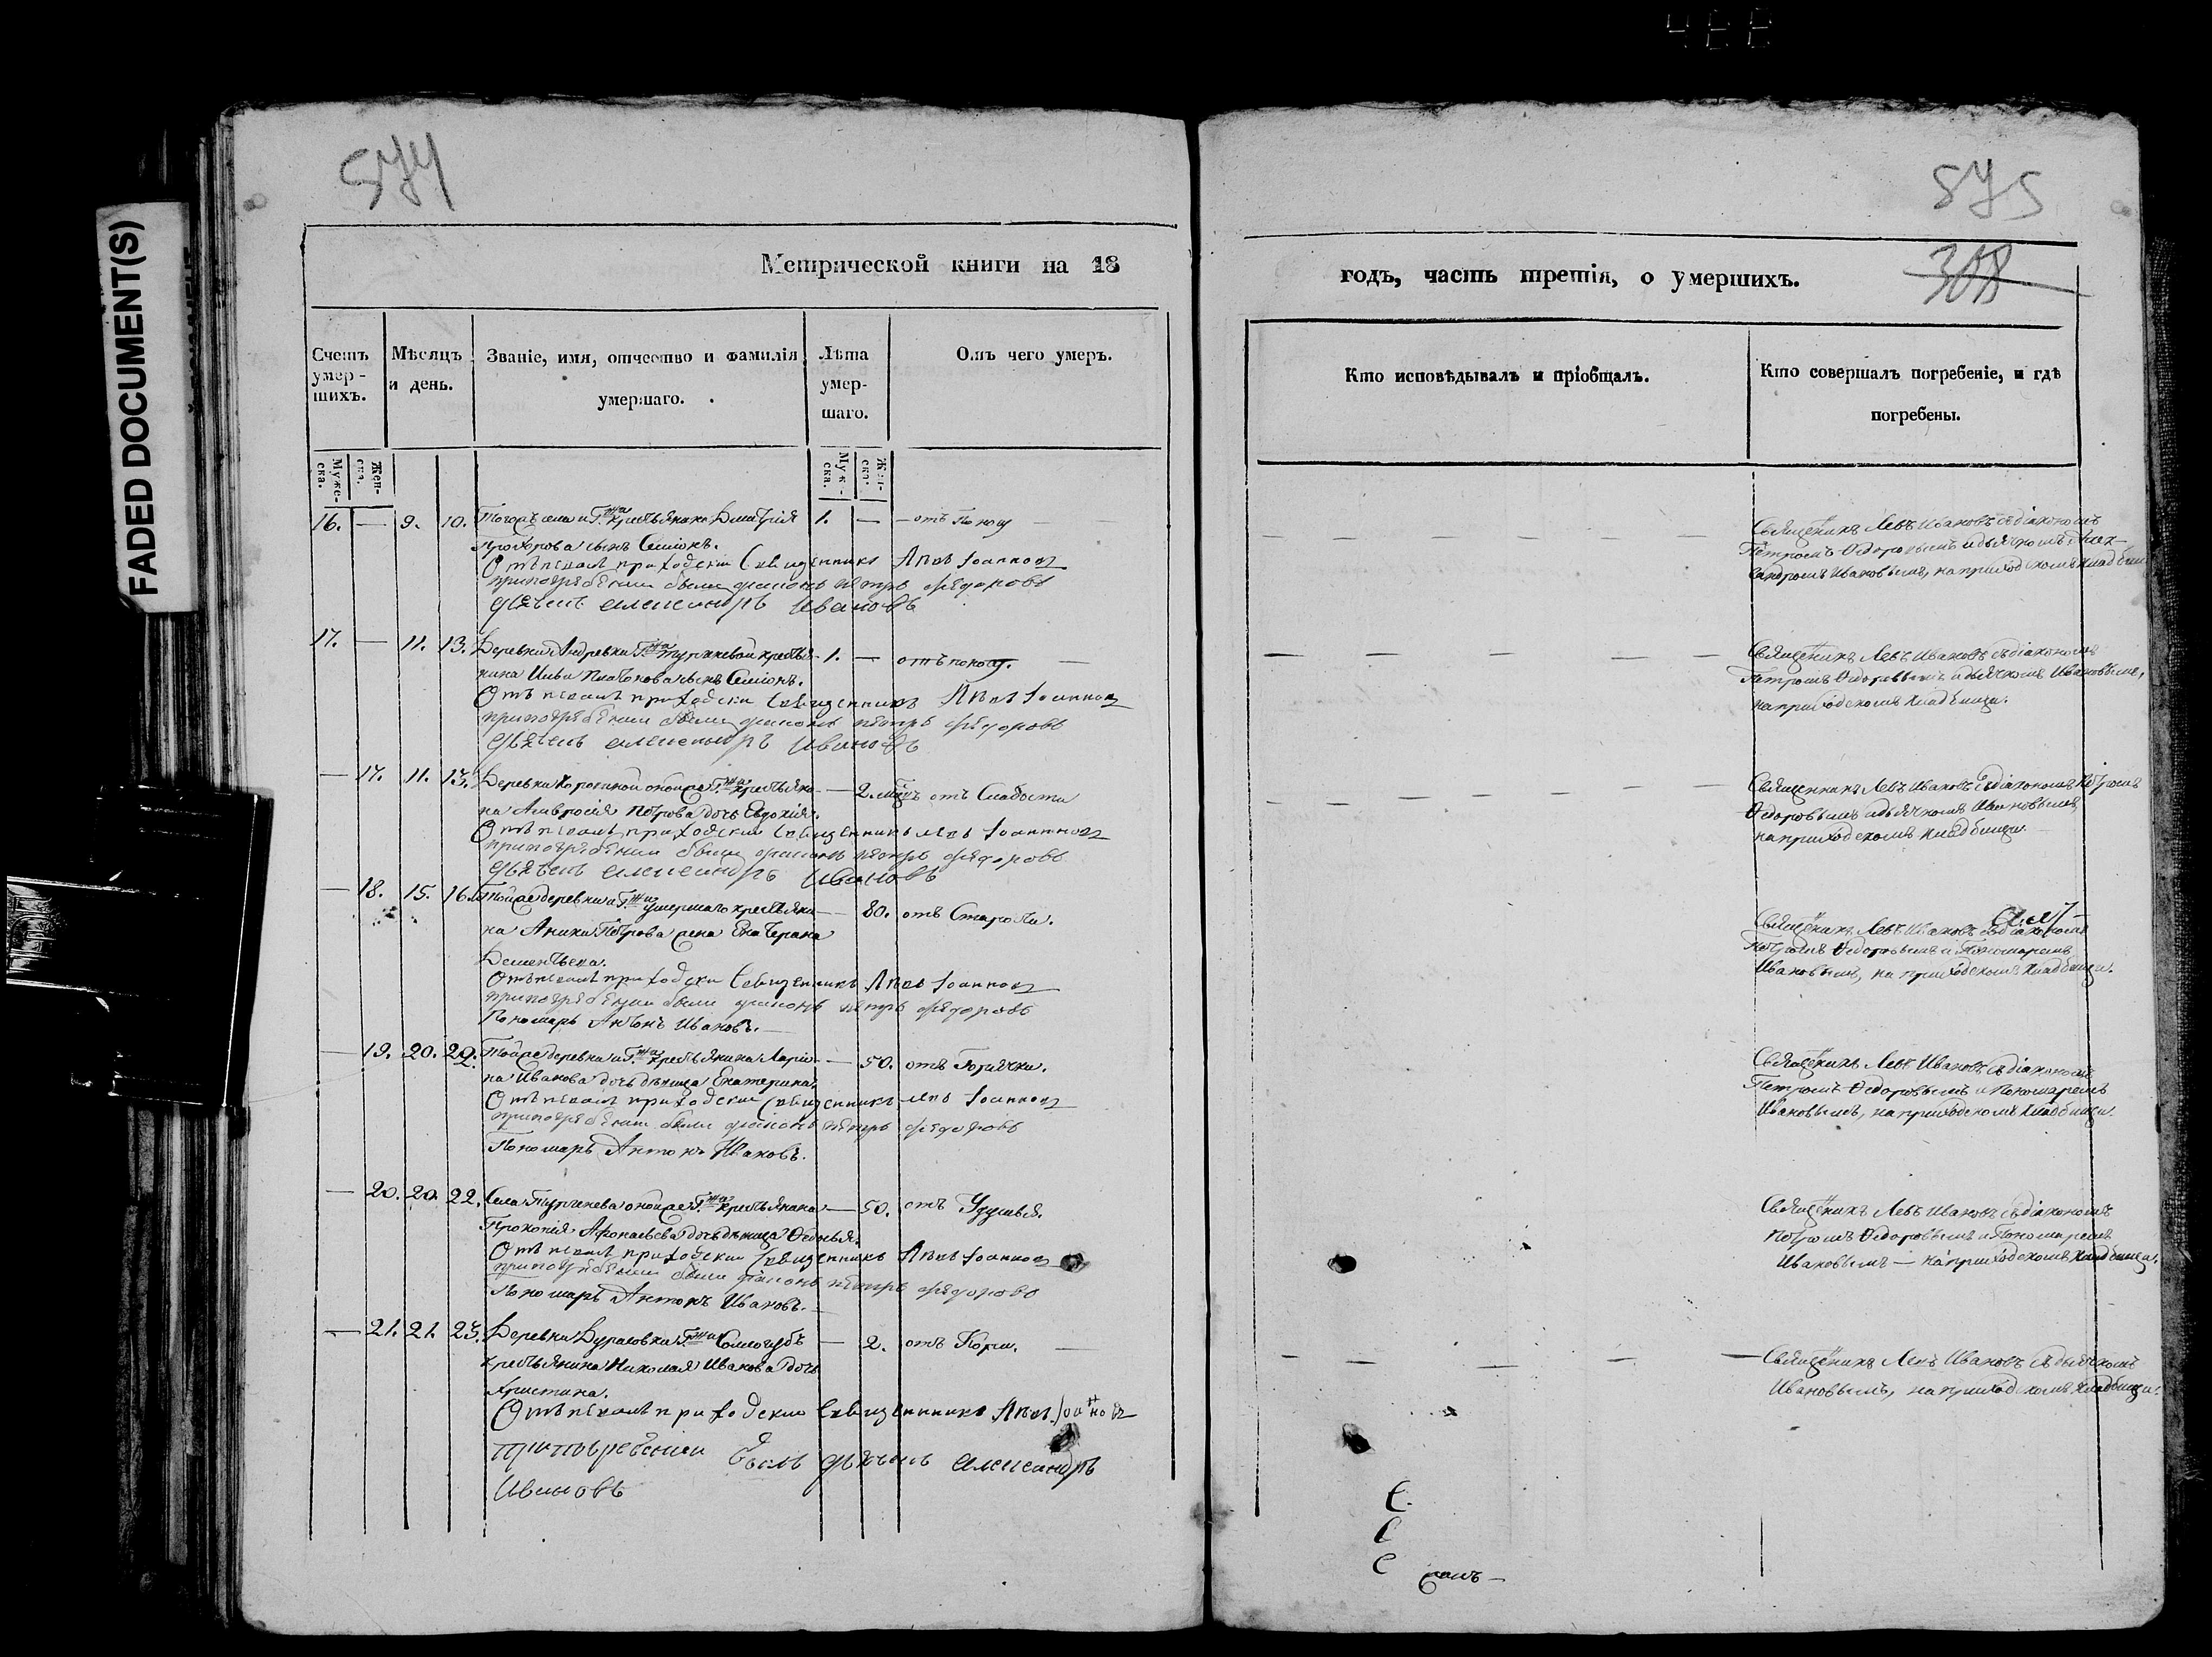 FADED DOCUMENT(S)
574
Метрической книги на 18
Счетъ умер-шихъ.
Мѣсяцъ и день.
Званіе, имя, отчество и фамилія умершаго.
Лѣта умер-шаго.
Отъ чего умеръ.
Муже-ска.
Жен-ска.
Муж-ска.
Жен-ска.
16. — 9. 10. Тогожъ села и Г.жи крестьянина Дмитрія 1. — отъ Поносу
Прохорова сынъ Симіонъ.
Отпевалъ приходски священникъ Левъ Іоанновъ
при погребении были диаконъ петръ федоровъ
дьячекъ александръ ивановъ
17. — 11. 13. Деревни Андревки Г.жи крестья- 1. — отъ поносу.
нина сынъ Симіонъ.
Отпевалъ приходски священникъ Левъ Іоанновъ
при погребении были диаконъ петръ федоровъ
дьячекъ александръ ивановъ
— 17. 11. 13. Деревни оной же Г.жи крестьяни- — 2. отъ Слабости
на Амвросія Петрова дочь Евдокія.
Отпевалъ приходски священникъ левъ Іоанновъ
при погребении были диаконъ петръ федоровъ
дьячекъ александръ ивановъ
— 18. 15. 16. Тойже деревни и Г.жи умершаго крестьяни- — 80. отъ Старости.
на Аники Петрова жена Екатерина
Дементьева.
Отпевалъ приходски священникъ Левъ Іоанновъ
при погребении были диаконъ петръ федоровъ
Пономарь Антонъ Ивановъ.
— 19. 20. 22. Тойже деревни и Г.жи крестьянина Ларіо- — 50. отъ Горячки.
на Иванова дочь дѣвица Екатерина.
Отпевалъ приходски священникъ левъ Іоанновъ
при погребении были диаконъ петръ федоровъ
Пономарь Антонъ Ивановъ.
— 20. 20. 22. Села Тургенева оной же Г.жи крестьянина — 50. отъ Удушья.
Прокопія Афонасьева дочь дѣвица Ѳедосья.
Отпевалъ приходски священникъ Левъ Іоанновъ
при погребении были диаконъ петръ федоровъ
Пономарь Антонъ Ивановъ.
— 21. 21. 23. Деревни Бурасовки Г.жи — 2. отъ Кори.
крестьянина Николая Иванова дочь
Христина.
Отпевалъ приходски священникъ Левъ Іоанновъ
при погребении былъ дьячекъ александръ
ивановъ
575
308
годъ, часть третія, о умершихъ.
Кто исповѣдывалъ и пріобщалъ.
Кто совершалъ погребеніе, и гдѣ погребены.
Священникъ Левъ Ивановъ съ діакономъ
Петромъ Ѳедоровымъ и дьячкомъ Алек-
сандромъ Ивановымъ, на приходскомъ кладбищи
Священникъ Левъ Ивановъ съ діакономъ
Петромъ Ѳедоровымъ и дьячкомъ Ивановымъ,
на приходскомъ кладбищи.
Священникъ Левъ Ивановъ съ діакономъ Петромъ
Ѳедоровымъ и дьячкомъ Ивановымъ,
на приходскомъ кладбищи.
Священникъ Левъ Ивановъ съ діакономъ
Петромъ Ѳедоровымъ и Пономаремъ
Ивановымъ, на приходскомъ кладбищи.
Священникъ Левъ Ивановъ съ діакономъ
Петромъ Ѳедоровымъ и Пономаремъ
Ивановымъ, на приходскомъ кладбищи.
Священникъ Левъ Ивановъ съ діакономъ
Петромъ Ѳедоровымъ и Пономаремъ
Ивановымъ — на приходскомъ кладбищи.
Священникъ Левъ Ивановъ съ дьячкомъ
Ивановымъ, на приходскомъ кладбищи.